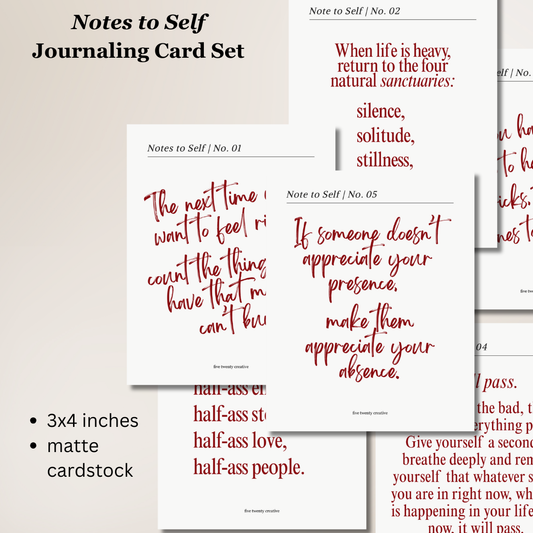 Notes to Self
Journaling Card Set
Note to Self | No. 02
When life is heavy,
return to the four
natural sanctuaries:
silence,
solitude,
stillness,
Notes to Self | No. 01
The next time
want to feel
count the thing
have that
can't
five twenty creative
Note to Self | No. 05
If someone doesn't
appreciate your
presence,
make them
appreciate your
absence.
five twenty creative
half-ass
half-ass
half-ass love,
half-ass people.
five twenty creative
five twenty creative
04
pass.
the bad,
Give yourself a second
breathe deeply and
yourself that whatever
you are in right now,
is happening in your life
now, it will pass.
3x4 inches
matte
cardstock